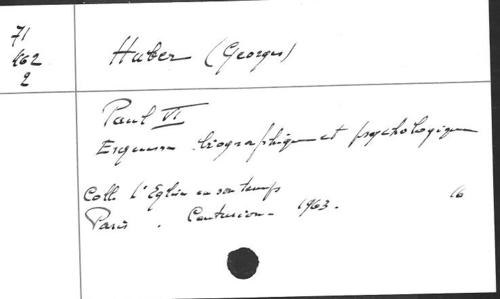 71
462
2
Huber (Georges)
Paul VI
Esquisse biographique et psychologique
Coll. L'Eglise en son temps
Paris. Centurion - 1963. 16